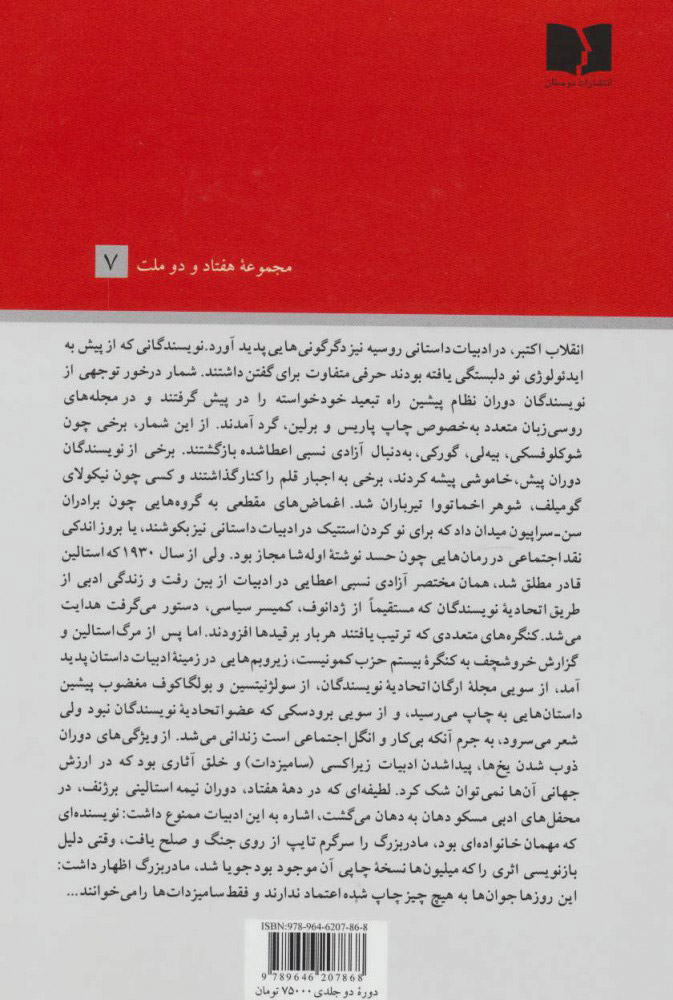 انتشارات دوستان
مجموعهٔ هفتاد و دو ملت ۷
انقلاب اکتبر، در ادبیات داستانی روسیه نیز دگرگونی‌هایی پدید آورد. نویسندگانی که از پیش به
ایدئولوژی نو دلبستگی یافته بودند حرفی متفاوت برای گفتن داشتند. شمار درخور توجهی از
نویسندگان دوران نظام پیشین راه تبعید خودخواسته را در پیش گرفتند و در مجله‌های
روسی‌زبان متعدد به‌خصوص چاپ پاریس و برلین، گرد آمدند. از این شمار، برخی چون
شوکلوفسکی، بیه‌لی، گورکی، به‌دنبال آزادی نسبی اعطاشده بازگشتند. برخی از نویسندگان
دوران پیش، خاموشی پیشه کردند، برخی به اجبار قلم را کنار گذاشتند و کسی چون نیکولای
گومیلف، شوهر اخماتووا تیرباران شد. اغماض‌های مقطعی به گروه‌هایی چون برادران
سن-سراپیون میدان داد که برای نو کردن استتیک در ادبیات داستانی نیز بکوشند، یا بروز اندکی
نقد اجتماعی در رمان‌هایی چون حسد نوشتهٔ اوله‌شا مجاز بود. ولی از سال ۱۹۳۰ که استالین
قادر مطلق شد، همان مختصر آزادی نسبی اعطایی در ادبیات از بین رفت و زندگی ادبی از
طریق اتحادیهٔ نویسندگان که مستقیماً از ژدانوف، کمیسر سیاسی، دستور می‌گرفت هدایت
می‌شد. کنگره‌های متعددی که ترتیب یافتند هربار بر قیدها افزودند. اما پس از مرگ استالین و
گزارش خروشچف به کنگرهٔ بیستم حزب کمونیست، زیروبم‌هایی در زمینهٔ ادبیات داستان پدید
آمد، از سویی مجلهٔ ارگان اتحادیهٔ نویسندگان، از سولژنیتسین و بولگاکوف مغضوب پیشین
داستان‌هایی به چاپ می‌رسید، و از سویی برودسکی که عضو اتحادیهٔ نویسندگان نبود ولی
شعر می‌سرود، به جرم آنکه بی‌کار و انگل اجتماعی است زندانی می‌شد. از ویژگی‌های دوران
ذوب شدن یخ‌ها، پیداشدن ادبیات زیراکسی (سامیزدات) و خلق آثاری بود که در ارزش
جهانی آن‌ها نمی‌توان شک کرد. لطیفه‌ای که در دههٔ هفتاد، دوران نیمه استالینی برژنف، در
محفل‌های ادبی مسکو دهان به دهان می‌گشت، اشاره به این ادبیات ممنوع داشت: نویسنده‌ای
که مهمان خانواده‌ای بود، مادربزرگ را سرگرم تایپ از روی جنگ و صلح یافت، وقتی دلیل
بازنویسی اثری را که میلیون‌ها نسخهٔ چاپی آن موجود بود جویا شد، مادربزرگ اظهار داشت:
این روزها جوان‌ها به هیچ چیز چاپ شده اعتماد ندارند و فقط سامیزدات‌ها را می‌خوانند...
ISBN: 978-964-6207-86-8
9 789646 207868
دورهٔ دو جلدی ۷۵۰۰۰ تومان